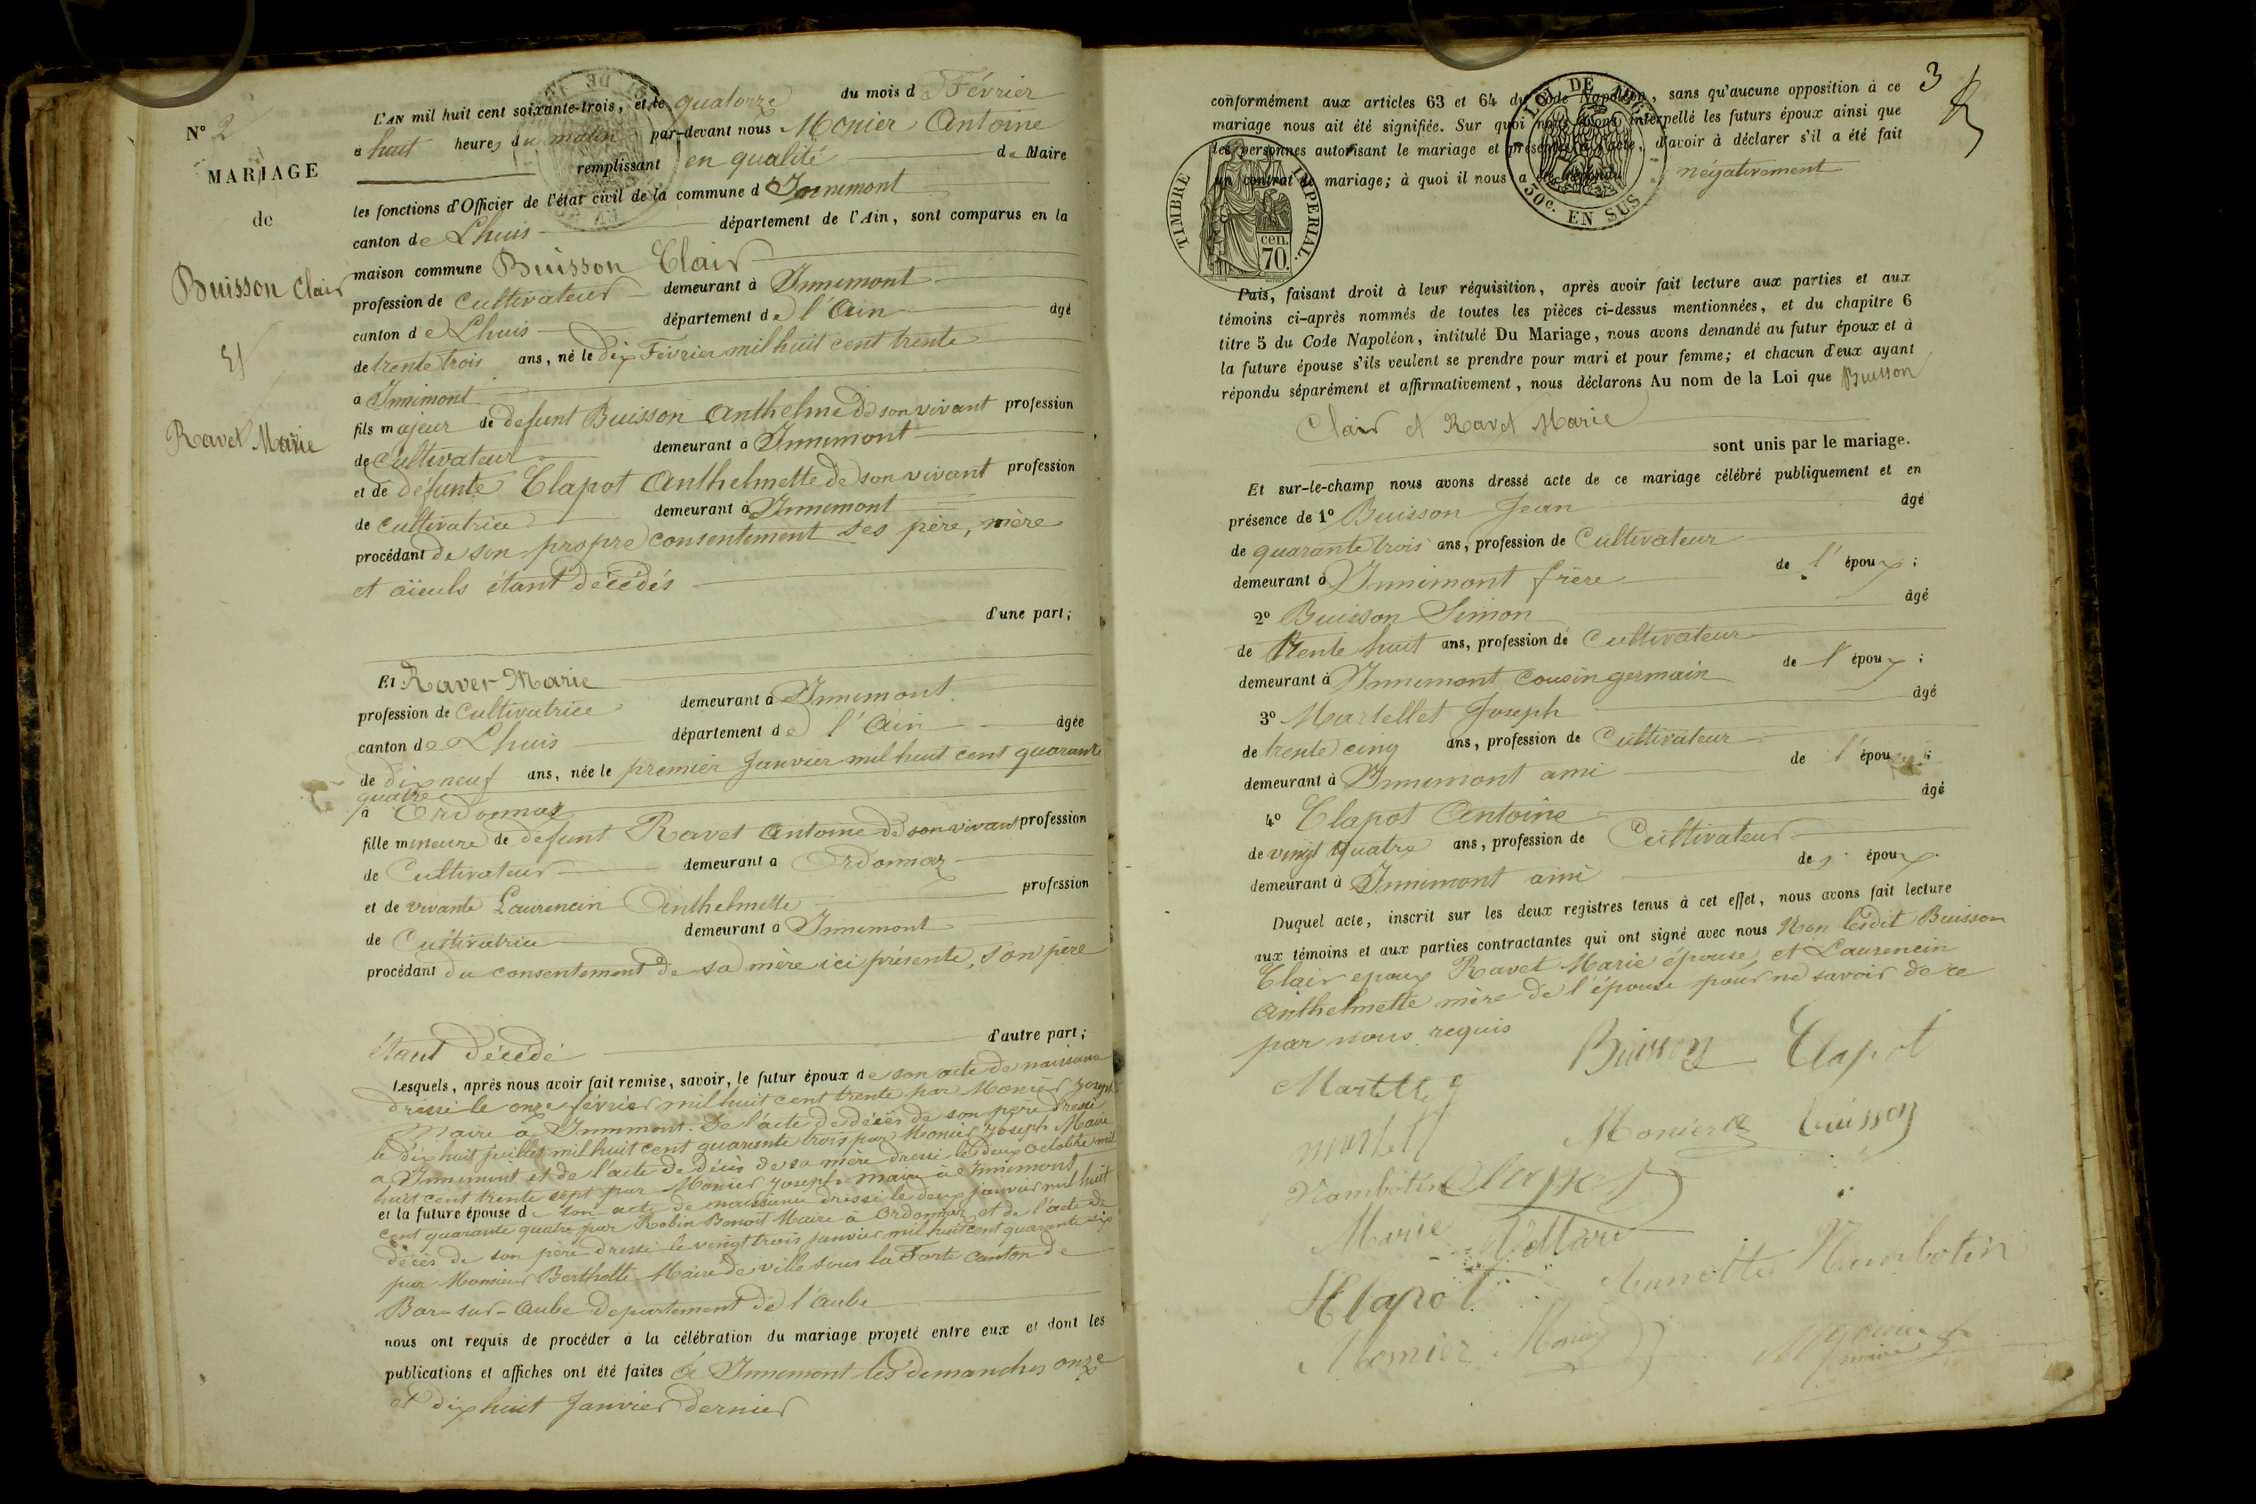 N° 2
MARIAGE
de
Buisson Clair
Et
Ravet Marie
L'AN mil huit cent soixante-trois, et le quatorze du mois de Février
à huit heures du matin par-devant nous Monier Antoine
remplissant en qualité de Maire
les fonctions d'Officier de l'état civil de la commune d'Innimont
canton de Lhuis département de l'Ain, sont comparus en la
maison commune Buisson Clair
profession de cultivateur demeurant à Innimont
canton de Lhuis département de l'Ain âgé
de trente trois ans, né le dix Février mil huit cent trente
a Innimont
fils majeur de defunt Buisson Anthelme de son vivant profession
de cultivateur demeurant a Innimont
et de défunte Clapot Anthelmette de son vivant profession
de cultivatrice demeurant à Innimont
procédant de son propre consentement ses père, mère
et aïeuls étant décédés
d'une part;
Et Ravet Marie
profession de cultivatrice demeurant à Innimont
canton de Lhuis département de l'Ain âgée
de dix neuf ans, née le premier Janvier mil huit cent quarante
quatre
à Ordonnaz
fille mineure de defunt Ravet Antoine de son vivant profession
de Cultivateur demeurant a Ordonnaz
et de vivante Laurencin Anthelmette profession
de Cultivatrice demeurant à Innimont
procédant du consentement de sa mère ici présente, son père
étant décédé d'autre part;
Lesquels, après nous avoir fait remise, savoir, le futur époux de son acte de naissance
dressé le onze février mil huit cent trente par Monier Joseph
Maire à Innimont. De l'acte de décès de son père dressé
le dix huit juillet mil huit cent quarante trois par Monier Joseph Maire
a Innimont et de l'acte de décès de sa mère dressé le deux octobre mil
huit cent trente sept par Monier Joseph maire à Innimont
et la future épouse de son acte de naissance dressé le deux janvier mil huit
cent quarante quatre par Robin Benoit Maire à Ordonnaz et de l'acte de
décès de son père dressé le vingt trois janvier mil huit cent quarante six
par Monsieur Berthotte Maire de ville sous la Ferté canton de
Bar-sur-Aube departement de l'Aube
nous ont requis de procéder à la célébration du mariage projeté entre eux et dont les
publications et affiches ont été faites à Innimont les dimanches onze
et dix huit Janvier dernier
3
conformément aux articles 63 et 64 du Code Napoléon, sans qu'aucune opposition à ce
mariage nous ait été signifiée. Sur quoi nous avons interpellé les futurs époux ainsi que
les personnes autorisant le mariage et présentes à l'acte, d'avoir à déclarer s'il a été fait
un contrat de mariage; à quoi il nous a été répondu négativement
LOI DE
50c. EN SUS
TIMBRE IMPERIAL.
cen.
70.
Puis, faisant droit à leur réquisition, après avoir fait lecture aux parties et aux
témoins ci-après nommés de toutes les pièces ci-dessus mentionnées, et du chapitre 6
titre 5 du Code Napoléon, intitulé Du Mariage, nous avons demandé au futur époux et à
la future épouse s'ils veulent se prendre pour mari et pour femme; et chacun d'eux ayant
répondu séparément et affirmativement, nous déclarons Au nom de la Loi que Buisson
Clair et Ravet Marie
sont unis par le mariage.
Et sur-le-champ nous avons dressé acte de ce mariage célébré publiquement et en
présence de 1° Buisson Jean âgé
de quarante trois ans, profession de Cultivateur
demeurant à Innimont frère de l'époux;
2° Buisson Simon âgé
de trente huit ans, profession de Cultivateur
demeurant à Innimont cousin germain de l'époux;
3° Martellet Joseph âgé
de trente cinq ans, profession de Cultivateur
demeurant à Innimont ami de l'époux;
4° Clapot Antoine âgé
de vingt quatre ans, profession de Cultivateur
demeurant à Innimont ami des époux
Duquel acte, inscrit sur les deux registres tenus à cet effet, nous avons fait lecture
aux témoins et aux parties contractantes qui ont signé avec nous Non lesdit Buisson
Clair epoux Ravet Marie épouse et Laurencin
Anthelmette mère de l'épouse pour ne savoir de ce
par nous requis
Buisson Clapot
Monier Buisson
Nambotin
Marie
Clapot Annette Nambotin
Monier Monier
maire